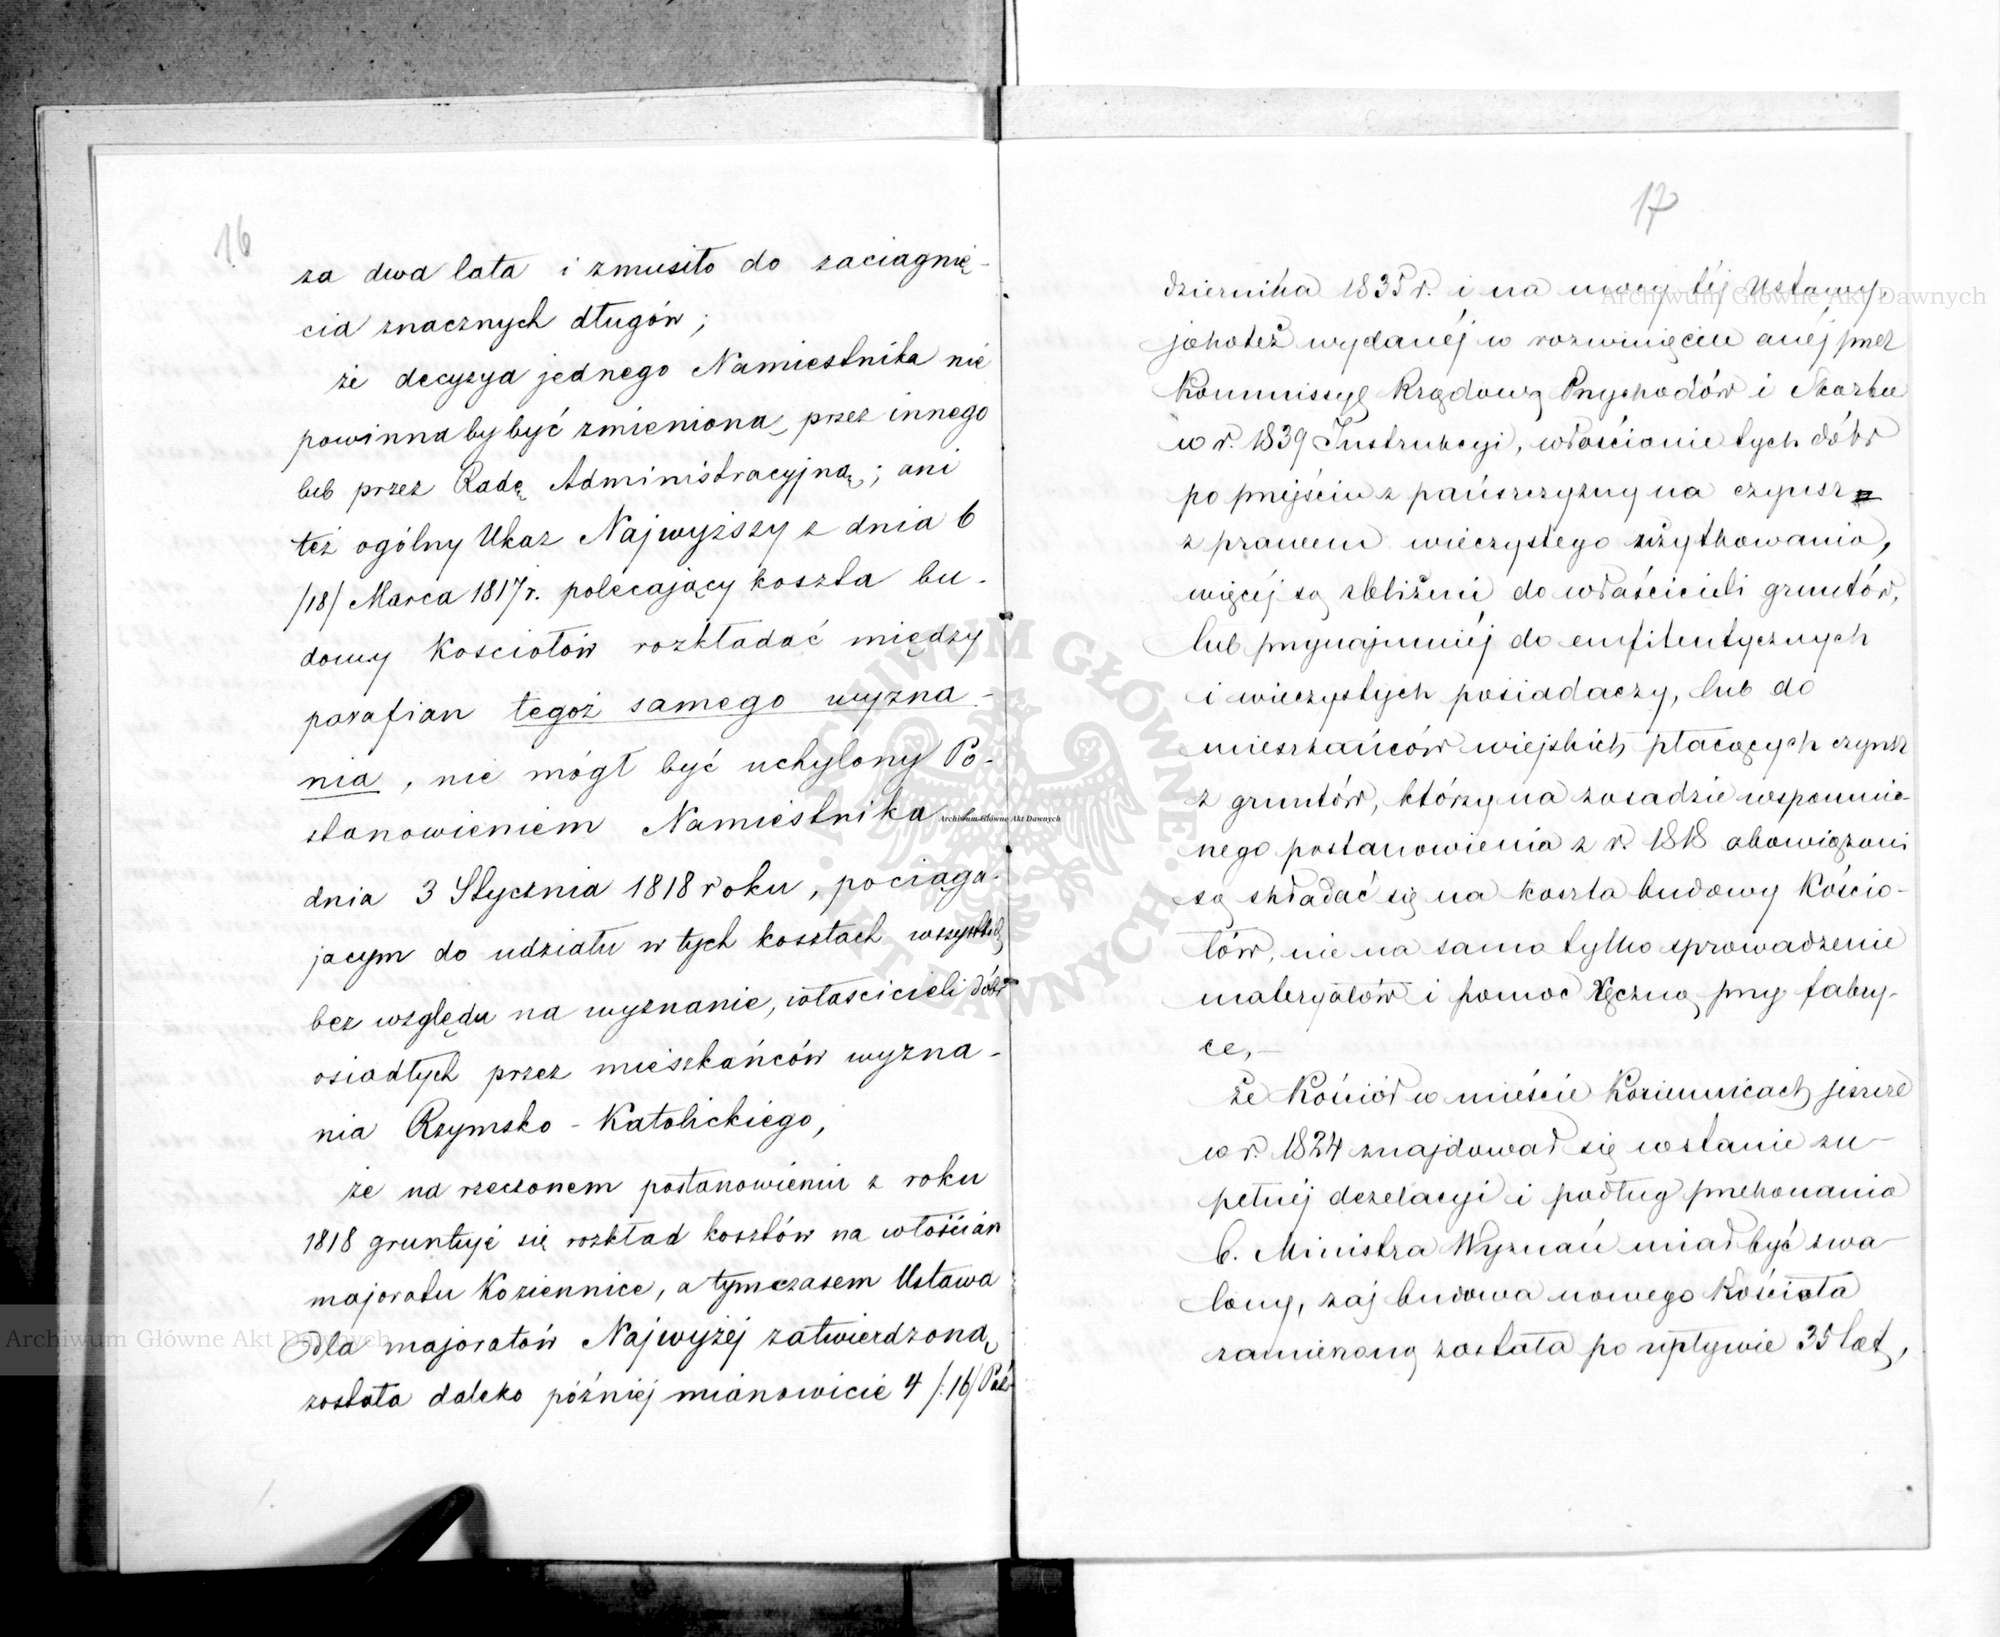 16
za dwa lata i zmusiło do zaciagnię-
cia znacznych długów;
że decyzya jednego Namiestnika nie
powinna by być zmieniona, przez innego
lub przez Radę Administracyjną; ani
też ogólny Ukaz Najwyższy z dnia 6
/18/ Marca 1817 r. polecający koszta bu-
dowy Kosciołów rozkładać między
parafian tegoż samego wyzna-
nia, nie mógł być uchylony Po-
stanowieniem Namiestnika z
dnia 3 Stycznia 1818 roku, pociąga-
jacym do udziału w tych kosztach wszystkich
bez względu na wyznanie, włascicieli dóbr
osiadłych przez mieszkańców wyzna-
nia Rzymsko-Katolickiego,
że na rzeczonem postanowieniu z roku
1818 gruntuje się rozkład kosztów na włościan
majoratu Koziennice, a tymczasem Ustawa
dla majoratów Najwyżej zatwierdzoną
została daleko później mianowicie 4 /:16/ Paź-
17
dziernika 1835 r. i na mocy téj Ustawy,
jakoteż wydanéj w rozwinięciu onéj przez
Kommissyę Rządową Przychodów i Skarbu
w r. 1839 Instrukcyi, włościanie tych dóbr
po przejściu z pańszczyzny na czynsz
z prawem wieczystego użytkowania,
więcéj są zbliżeni do właścicieli gruntów,
lub przynajmniéj do emfiteutycznych
i wieczystych posiadaczy, lub do
mieszkańców wiejskich płacących czynsz
z gruntów, którzy na zasadzie wspomnio-
nego postanowienia z r. 1818 obowiązani
są składać się na koszta budowy Kościo-
łów, nie na samo tylko sprowadzenie
materyałów i pomoc ręczną przy fabry-
ce,—
że Kościół w mieście Kozienicach jeszcze
w r. 1824 znajdował się w stanie zu-
pełnéj dezelacyi i podług przekonania
b. Ministra Wyznań miał być zwa-
lony, zaś budowa nowego Kościoła
zamierzoną została po upływie 35 lat,
Archiwum Główne Akt Dawnych
Archiwum Główne Akt Dawnych
Archiwum Główne Akt Dawnych
ARCHIWUM GŁÓWNE AKT DAWNYCH